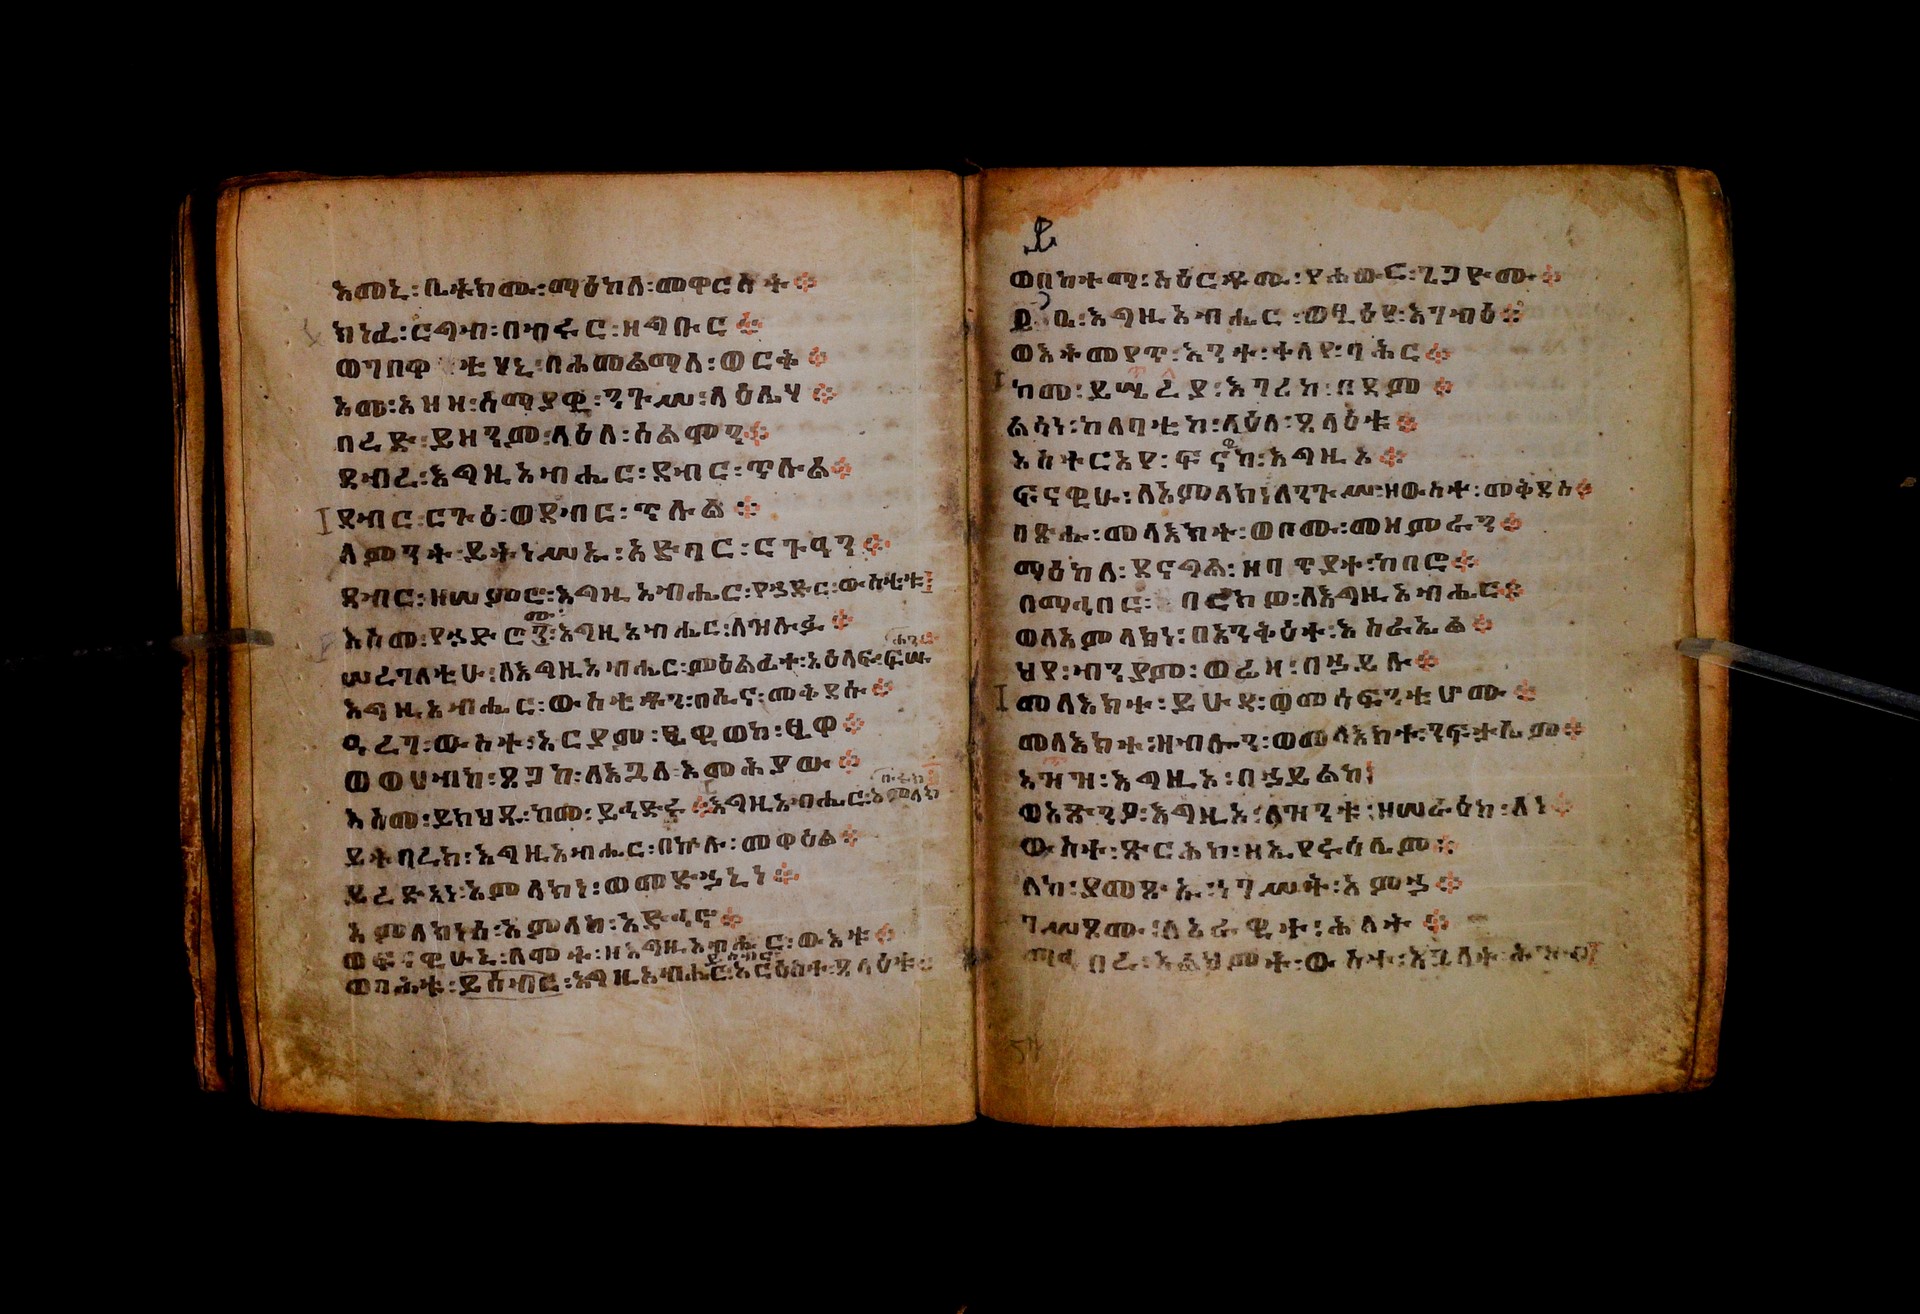 እመኒ፡ቤትክሙ፡ማዕከለ፡መዋርስት፨
ክነፈ፡ርግብ፡በብሩር፡ዘግቡር፨
ወገበዋቲሃኒ፡በሐመልማለ፡ወርቅ፨
አመ፡አዘዘ፡ሰማያዊ፡ንጉሠ፡ላዕሌሃ፨
በረድ፡ይዘንም፡ላዕለ፡ሰልሞን፨
ደብረ፡እግዚአብሔር፡ደብር፡ጥሉል፨
ደብር፡ርጉዕ፡ወደብር፡ጥሉል፨
ለምንት፡ይትነሥኡ፡አድባር፡ርጉዓን፨
ደብር፡ዘሠምሮ፡እግዚአብሔር፡የኀድር፡ውስቴቱ፨
እስመ፡የኀድሮ፡እግዚአብሔር፡ለዝሉፉ፨
ሠረገላቲሁ፡ለእግዚአብሔር፡ምዕልፊት፡አዕላፍ፡ፍሡሓን፨
እግዚአብሔር፡ውስቴቶን፡በሲና፡መቅደሱ፨
ዓረገ፡ውስተ፡አርያም፡ፄዊወከ፡ፄዋ፨
ወወሀብከ፡ጸጋከ፡ለእጓለ፡እመሕያው፨
እስመ፡ይክህዱ፡ከመ፡ይኅድሩ፨እግዚአብሔር፡አምላክ፡ቡሩክ፨
ይትባረክ፡እግዚአብሔር፡በኵሉ፡መዋዕል፨
ይረድአነ፡አምላክነ፡ወመድኀኒነ፨
አምላክነሰ፡አምላከ፡አድኅኖ፨
ወፍናዊሁኒ፡ለሞት፡ዘእግዚአብሔር፡ውእቱ፨
ወባሕቱ፡ይሰብር፡እግዚአብሔር፡አርዕስተ፡ጸላዕቱ፨
ወበከተማ፡አዕርጹሙ፡የሐውር፡ጌጋዮሙ፨
ይቤ፡እግዚአብሔር፡ወፂዕየ፡እገብዕ፨
ወእትመየጥ፡እንተ፡ቀላየ፡ባሕር፨
ከመ፡እግረከ፡በደም፨
ልሳነ፡ከለባቲከ፡ላዕለ፡ጸላዕቱ፨
አስተርአየ፡ፍናዊከ፡እግዚአ፨
ፍናዊሁ፡ለአምላክነ፡ለንጉሥ፡ዘውስተ፡መቅደስ፨
በጽሑ፡መላእክት፡ወቦሙ፡መዘምራን፨
ማዕከለ፡ደናግል፡ዘባጥያት፡ከበሮ፨
በማኅበር፡ባርክዎ፡ለእግዚአብሔር፨
ወለአምላክነ፡በአንቅዕት፡እስራኤል፨
ህየ፡ብንያም፡ወሬዛ፡በኀይሉ፨
መላእክት፡ይሁዳ፡ወመሳፍንቲሆሙ፨
መላእክት፡ዘብሎን፡ወመላእክት፡ንፍታሌም፨
አዝዝ፡እግዚአ፡በኀይልከ፨
ወአጽንዖ፡እግዚአ፡ለዝንቱ፡ዘሠራዕከ፡ለነ፨
ውስተ፡ጽርሕከ፡ዘኢየሩሳሌም፨
ለከ፡ያመጽኡ፡ነገሥት፡አምኃ፨
ገሥጾሙ፡ለአራዊት፡ሕለት፨
ማኅበረ፡አልህምት፡ውስተ፡እጓላት፡ሕዝብ፨